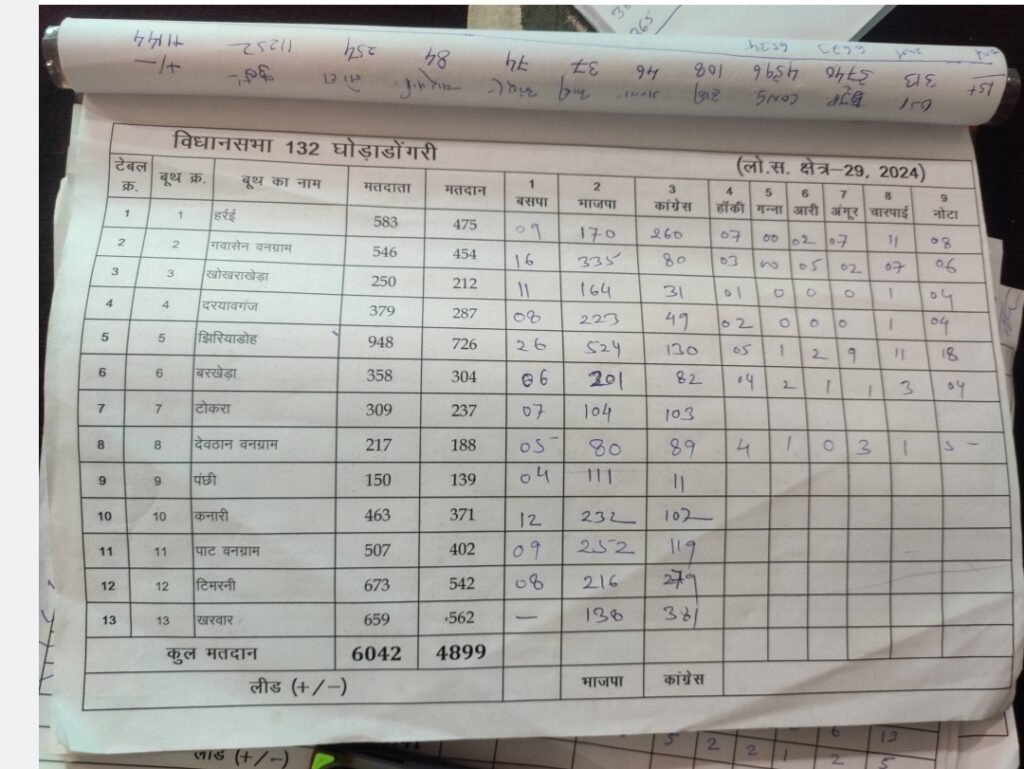 विधानसभा 132 घोड़ाडोंगरी (लो.स. क्षेत्र–29, 2024)
टेबल क्र. बूथ क्र. बूथ का नाम मतदाता मतदान 1 बसपा 2 भाजपा 3 कांग्रेस 4 हॉकी 5 गन्ना 6 आरी 7 अंगूर 8 चारपाई 9 नोटा
1 1 हर्रई 583 475 09 170 260 07 00 02 07 11 08
2 2 गवासेन वनग्राम 546 454 16 335 80 03 00 05 02 07 06
3 3 खोखराखेड़ा 250 212 11 164 31 01 0 0 0 1 04
4 4 दरयावगंज 379 287 08 223 49 02 0 0 0 1 04
5 5 झिरियाडोह 948 726 26 524 130 05 1 2 9 11 18
6 6 बरखेड़ा 358 304 06 201 82 04 2 1 1 3 04
7 7 टोकरा 309 237 07 104 103
8 8 देवठान वनग्राम 217 188 05 80 89 4 1 0 3 1 5
9 9 पंछी 150 139 04 111 11
10 10 कनारी 463 371 12 232 107
11 11 पाट वनग्राम 507 402 09 252 119
12 12 टिमरनी 673 542 08 216 279
13 13 खरवार 659 562 — 138 381
कुल मतदान 6042 4899
लीड (+/–) भाजपा कांग्रेस
लीड (+/–)